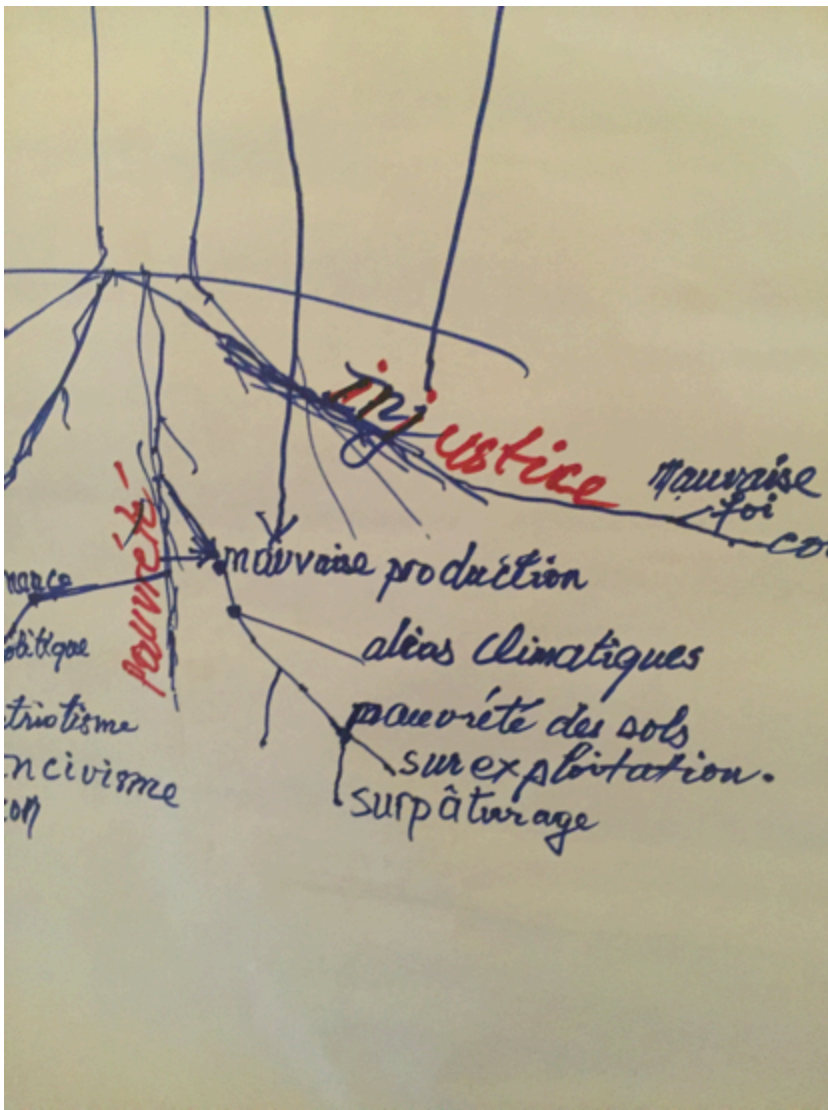 injustice
Mauvaise
foi
mauvaise production
pauvreté
aléas climatiques
pauvrété des sols
surexploitation.
surpâturage
olitique
triotisme
ncivisme